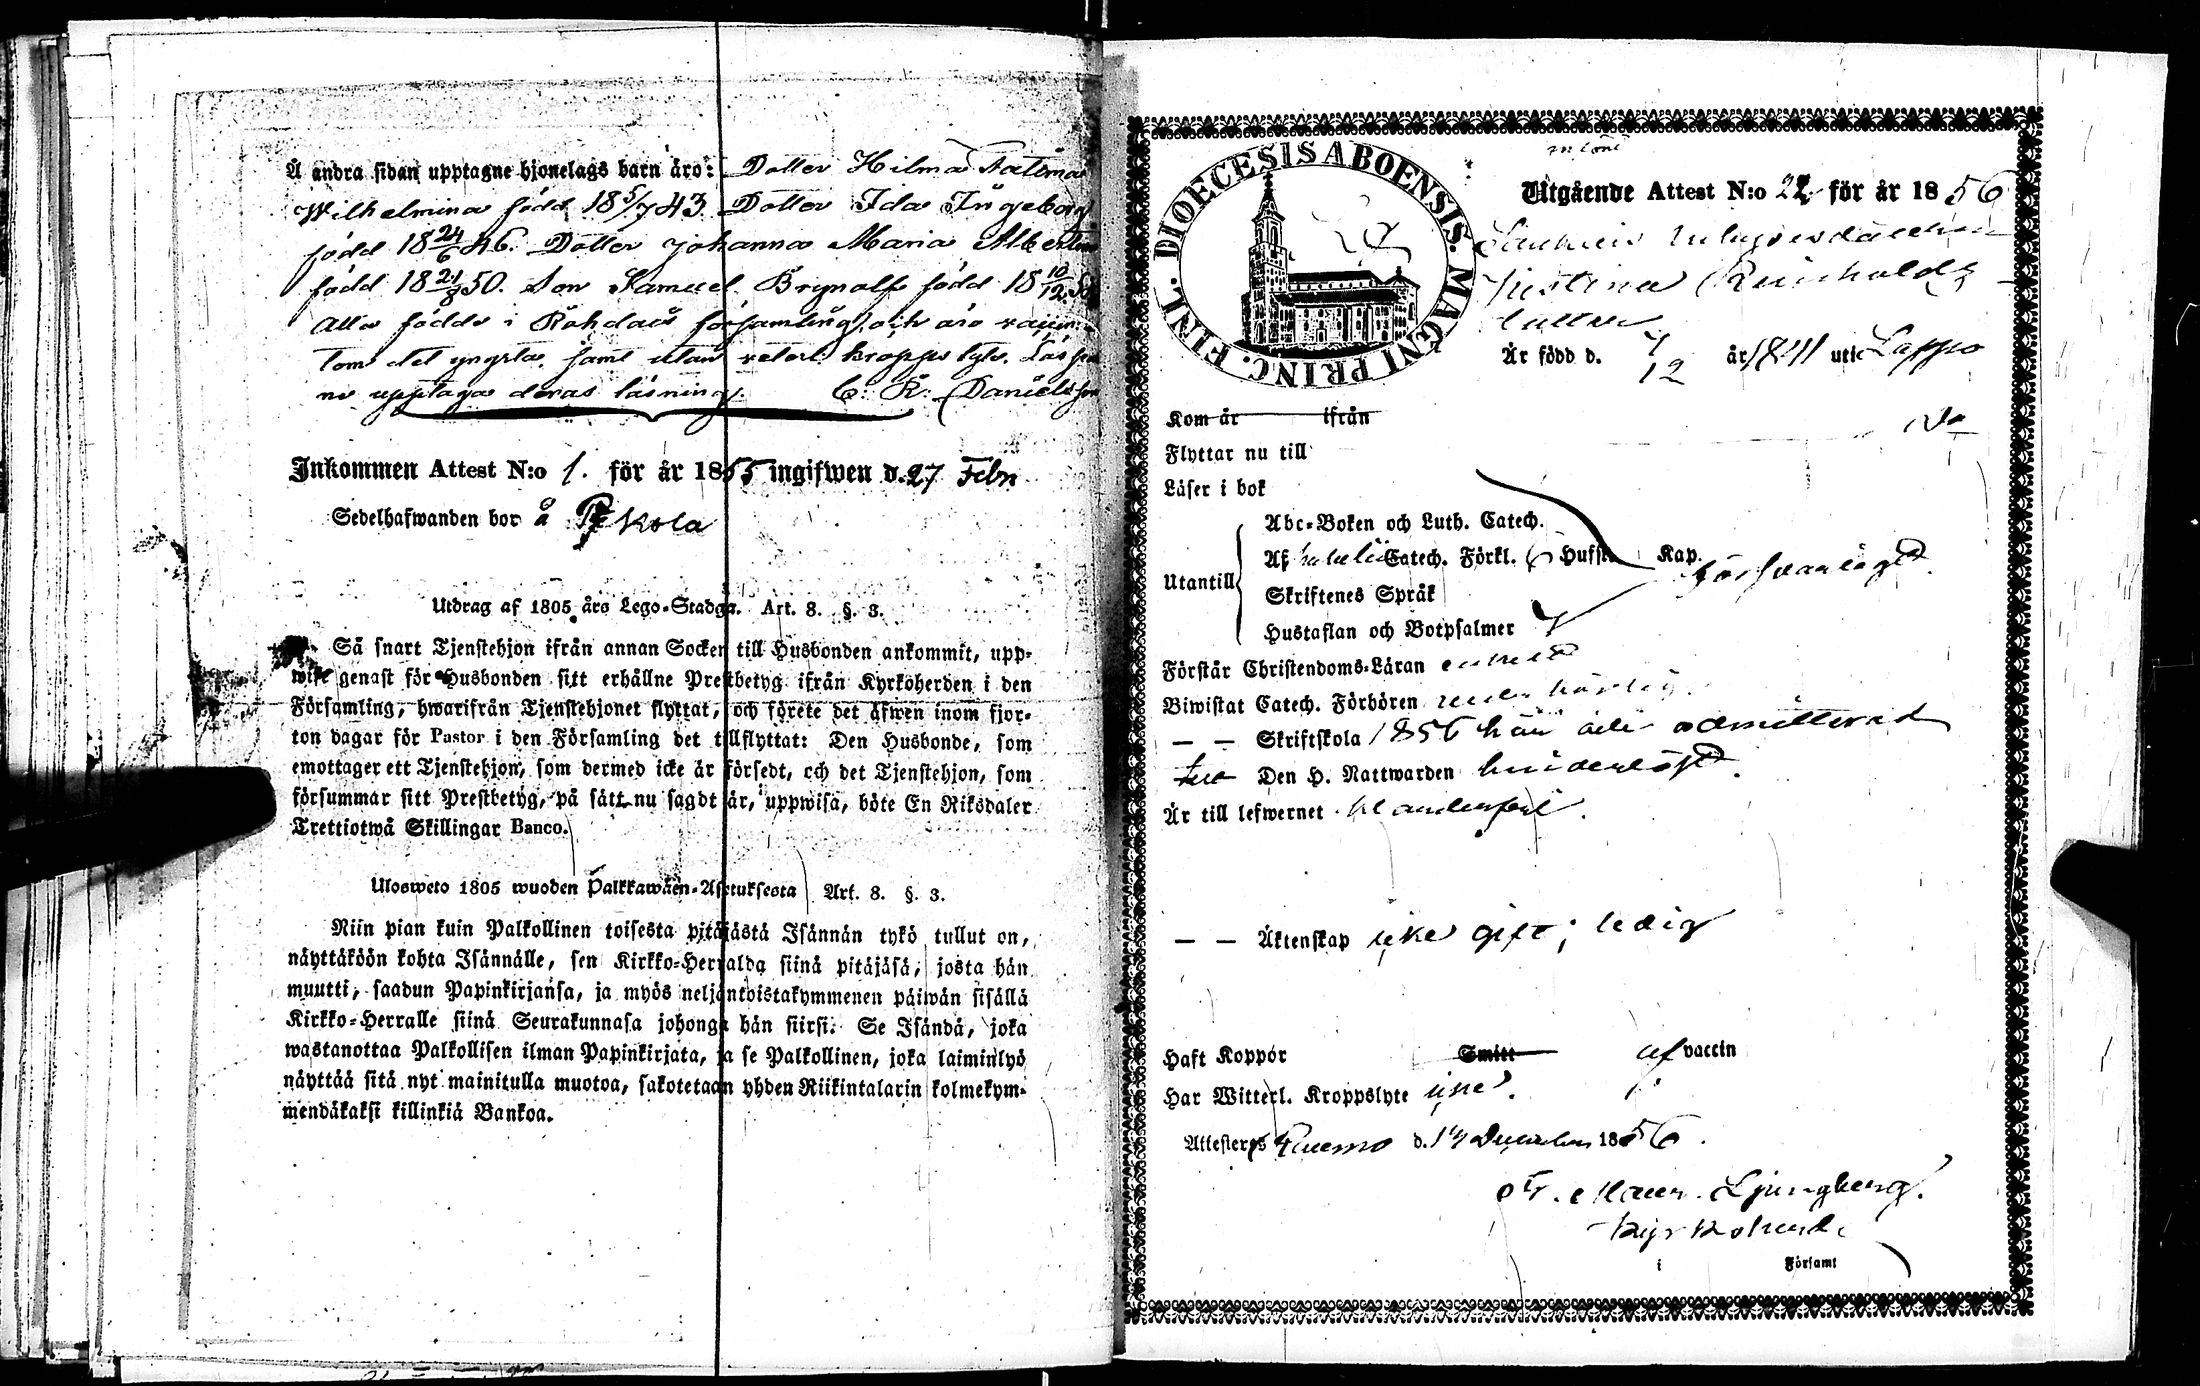 Å andra sidan upptagne hjonelags barn äro: Dotter Hilma
Wilhelmina född 18 5/7 43. Dotter Ida Ingeborg
född 18 24/6 46. Dotter Johanna Maria Albertina
född 18 21/8 50. Son Samuel Brynolf född 18 10/12
Alla födde i församling, och äro
tom det yngsta, samt utan kropps lyte.
ne upptaga deras läsning. C. R. Danielsson
Inkommen Attest N:o 1. för år 1855 ingifwen d. 27 Febr
Sedelhafwanden bor å
Utdrag af 1805 års Lego-Stadga. Art. 8. §. 3.
Så snart Tjenstehjon ifrån annan Socken till Husbonden ankommit, upp-
wise genast för Husbonden sitt erhållne Prestbetyg ifrån Kyrkoherden i den
Församling, hwarifrån Tjenstehjonet flyttat, och förete det äfwen inom fjor-
ton dagar för Pastor i den Församling det tillflyttat: Den Husbonde, som
emottager ett Tjenstehjon, som dermed icke är försedt, och det Tjenstehjon, som
försummar sitt Prestbetyg, på sätt nu sagdt är, uppwisa, böte En Riksdaler
Trettiotwå Skillingar Banco.
Ulosweto 1805 wuoden Palkkawäen-Asetuksesta Art. 8. §. 3.
Niin pian kuin Palkollinen toisesta pitäjästä Isännän tykö tullut on,
näyttäköön kohta Isännälle, sen Kirkko-Herralda siinä pitäjäsä, josta hän
muutti, saadun Papinkirjansa, ja myös neljäntoistakymmenen päiwän sisällä
Kirkko-Herralle siinä Seurakunnasa johonga hän siirsi. Se Isändä, joka
wastanottaa Palkollisen ilman Papinkirjata, ja se Palkollinen, joka laiminlyö
näyttää sitä nyt mainitulla muotoa, sakotetaan yhden Riikintalarin kolmekym-
mendäkaksi killinkiä Bankoa.
DIOECESIS ABOENSIS. MAGNI PRINC. FINL.
Utgående Attest N:o 22 för år 1856
Justina Reinholds
dotter
Är född d. 4/12 år 1841 uti Lappo
Kom år ifrån
Flyttar nu till
Läser i bok
Utantill
Abc-Boken och Luth. Catech.
Af Catech. Förkl. 6 Hufst. Kap.
försvarligt
Skriftenes Språk
Hustaflan och Botpsalmer
Förstår Christendoms-Läran enkelt
Biwistat Catech. Förhören
— — Skriftskola 1856 här admitterad
Den H. Nattwarden hinderlöst.
Är till lefwernet oklanderlig.
— — Äktenskap icke gift; ledig
Haft Koppor Smitt af vaccin
Har Witterl. Kroppslyte icke.
Attesteras d. 14 December 1856.
Ljungberg.
Kyrkoherde
i Församl